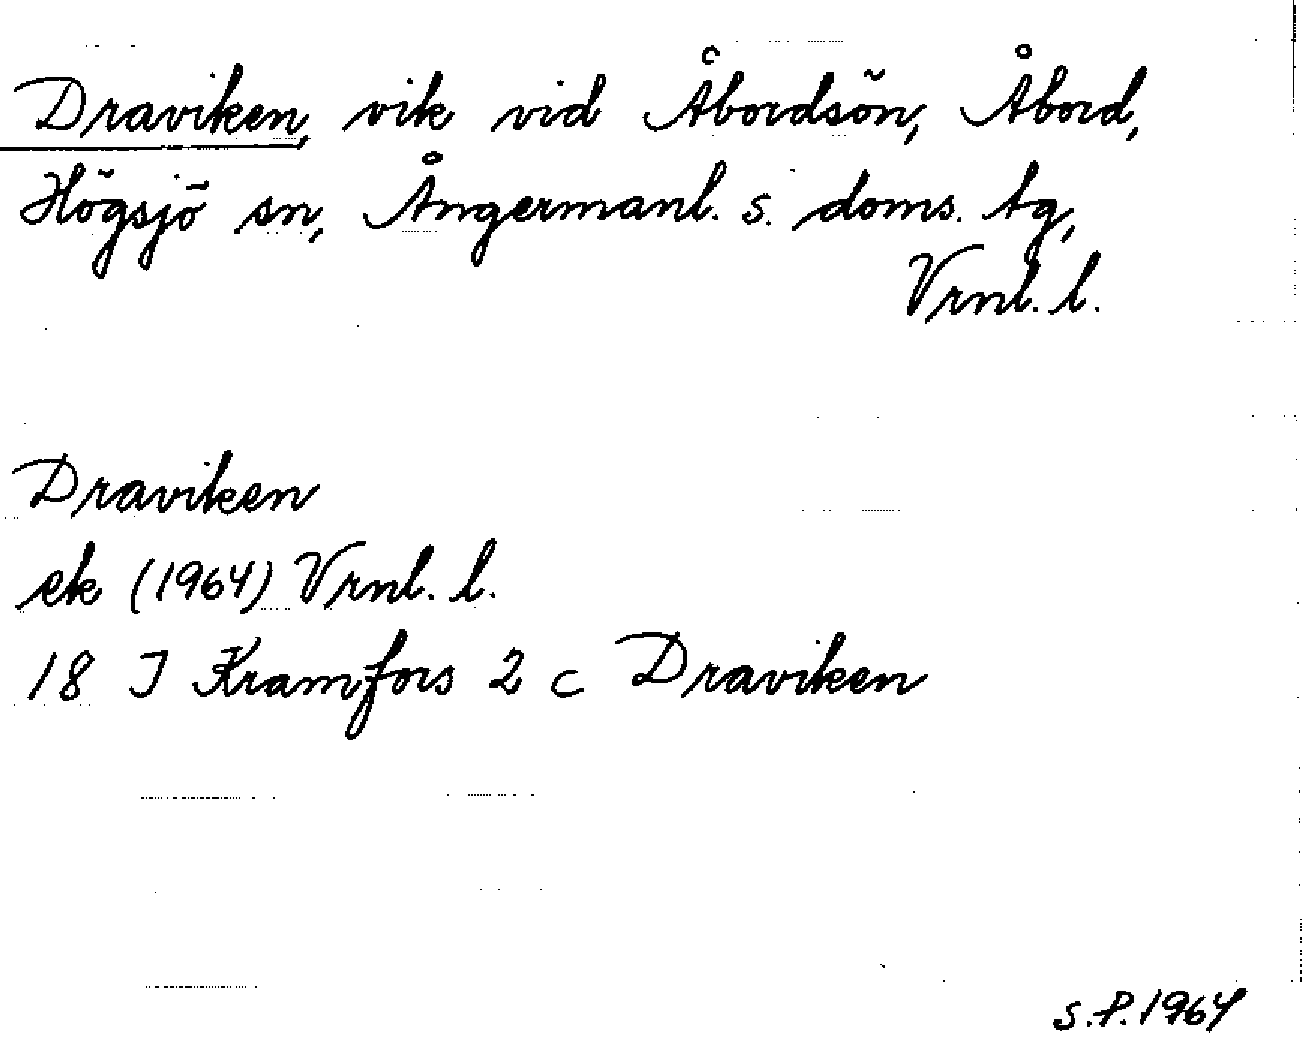 Draviken, vik vid Åbordsön, Åbord,
Högsjö sn, Ångermanl. s. doms. tg,
Vrnl. l.
Draviken
ek (1964) Vrnl. l.
18 I Kramfors 2 c Draviken
S.P. 1964